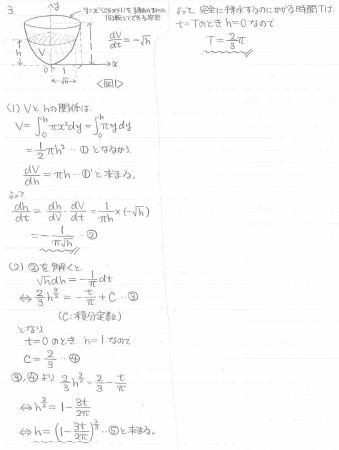 3.
y
y=x²(0≤x≤1)をy軸のまわりに
回転してできる容器
dV/dt = -√h
1
h
V
0
1
x
√h
<図1>
(1) Vとhの関係は
V = ∫₀ʰ πx²dy = ∫₀ʰ πy dy
= 1/2 πh² …① となるから
dV/dh = πh …①' と求まる。
よって
dh/dt = dh/dV · dV/dt = 1/πh × (-√h)
= - 1/π√h …②
(2) ②を解くと
√h dh = - 1/π dt
⇔ 2/3 h^(3/2) = - t/π + C …③
(C:積分定数)
となり
t=0のとき h=1なので
C = 2/3 …④
③,④より 2/3 h^(3/2) = 2/3 - t/π
⇔ h^(3/2) = 1 - 3t/2π
⇔ h = (1 - 3t/2π)^(2/3) …⑤と求まる。
よって、完全に排水するのにかかる時間Tは、
t=Tのとき h=0なので
T = 2/3 π